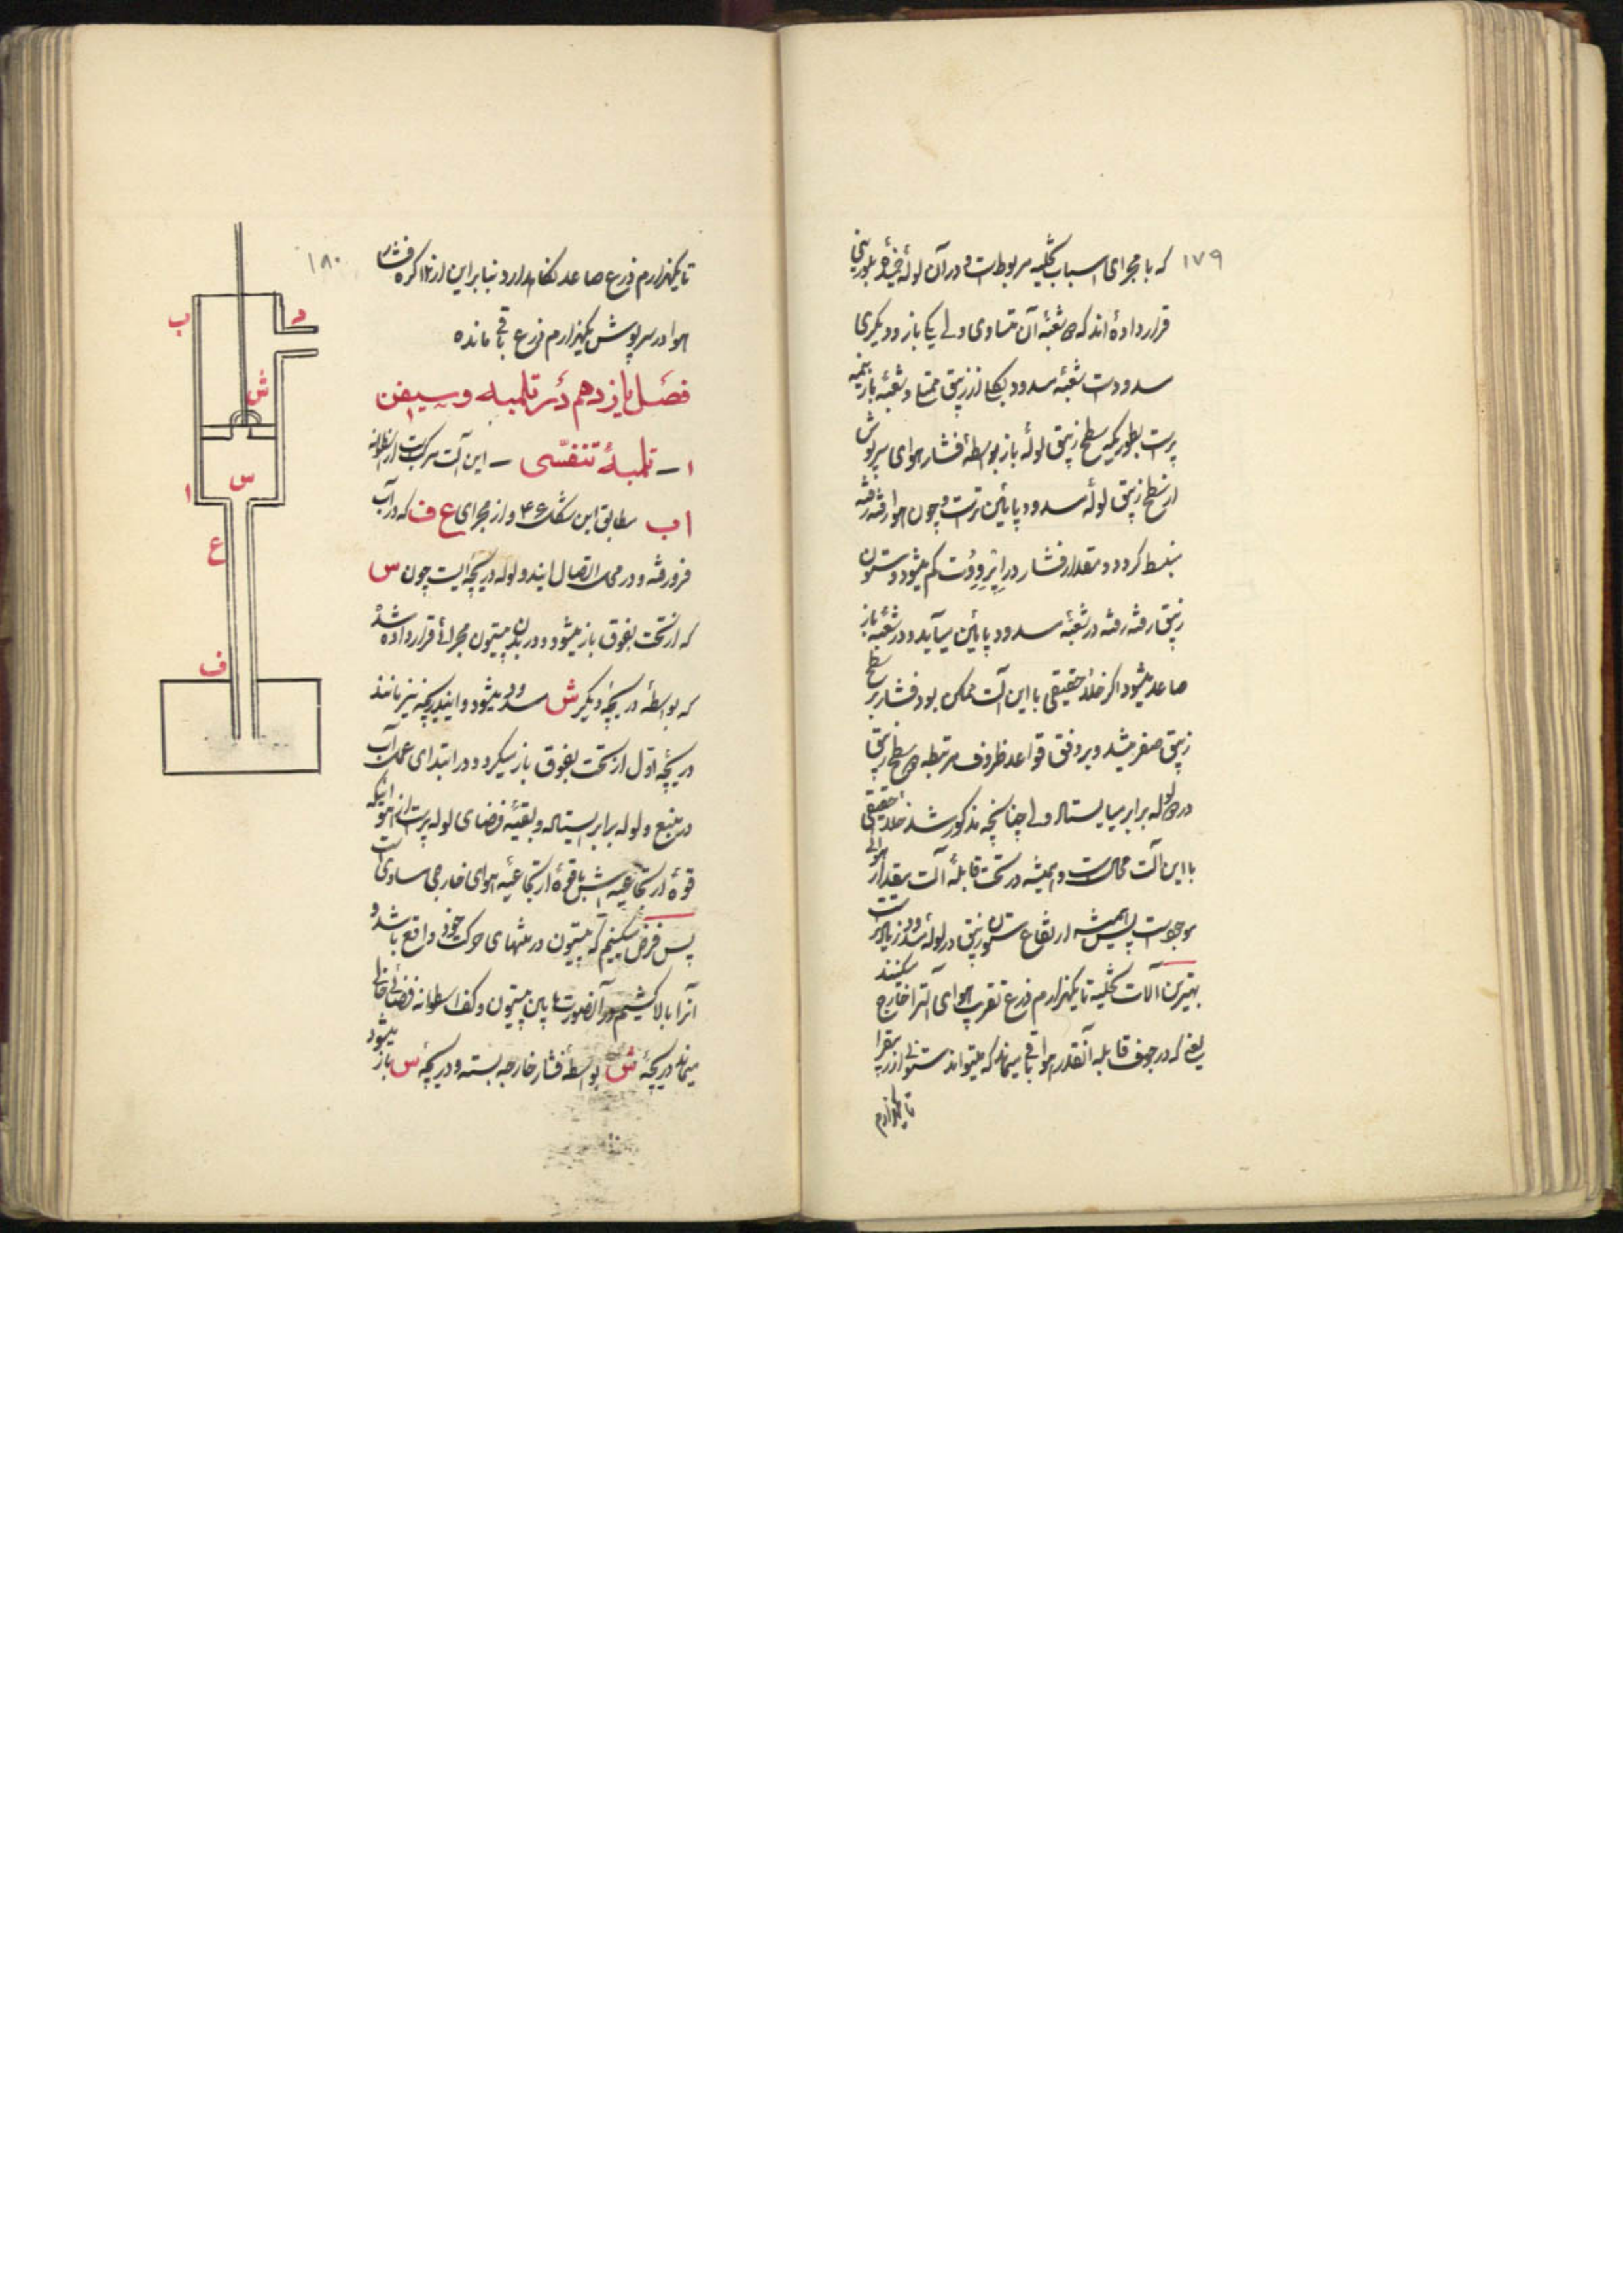 ۱۷۹
که با مجرای اسباب تخلیه مربوط است و در آن لولهٔ خمیدهٔ بلورینی
قرار داده‌اند که دو شعبهٔ آن متساوی ولی یکی باز و دیگری
مسدود است شعبهٔ مسدود بکلی از زیبق ممتلی و شعبهٔ باز نیمه
پر است بطوریکه سطح زیبق لولهٔ باز بواسطهٔ فشار هوای سرپوش
از سطح زیبق لولهٔ مسدود پائین‌تر است و چون هوا رفته رفته
منبسط گردد و مقدار فشار در کم میشود و ستون
زیبق رفته رفته در شعبهٔ مسدود پایین میآید و در شعبهٔ باز
صاعد میشود اگر خلاء حقیقی با این آلت ممکن بود فشار بر سطح
زیبق صفر میشد و بر وفق قواعد ظروف مرتبطه دو سطح زیبق
در دو لوله برابر میایستاد ولی چنانچه مذکور شد خلاء حقیقی
با این آلت محال است و همیشه در تحت قابلهٔ آلت مقدار هوائی
موجود است پس همیشه ارتفاع ستون زیبق در لولهٔ مسدود زیادتر است
بهترین آلات تخلیه تا یکهزارم ذرع تقریب هوای آلترا خارج میکنند
یعنی که در جوف قابله آنقدر هوا باقی میماند که میتواند ستونی از زیبق را
تا یکهزارم
۱۸۰
تا یکهزارم ذرع صاعد نگاهدارد بنابراین از ۱۲ گره فشار
هوا در سرپوش یکهزارم ذرع باقی مانده
فصل یازدهم در تلمبه و سیفن
۱ – تلمبهٔ تنفسی – این آلت مرکب است از اسطوانه
ا ب مطابق این شکل ۴۶ و از مجرای ع ف که در آب
فرو رفته و در محل اتصال ایندو لوله دریچه‌ایست چون س
که از تحت بفوق باز میشود و در بدن پیستون مجرائی قرار داده شده
که بواسطهٔ دریچهٔ دیگر ش مسدود میشود و ایندریچه نیز مانند
دریچهٔ اول از تحت بفوق باز میگردد و در ابتدای عمل آب
در منبع و لوله برابر ایستاده و بقیهٔ فضای لوله پر است از هوائیکه
قوهٔ ارتجاعیه‌اش با قوهٔ ارتجاعیه هوای خارجی مساوی است
پس فرض میکنیم که پیستون در منتهای حرکت خود واقع باشد و
آنرا بالا کشیم در آنصورت مابین پیستون و کف اسطوانه فضائی خالی
میماند دریچهٔ ش بواسطهٔ فشار خارجه بسته و دریچهٔ س باز میشود
ب
د
ش
س
ا
ع
ف